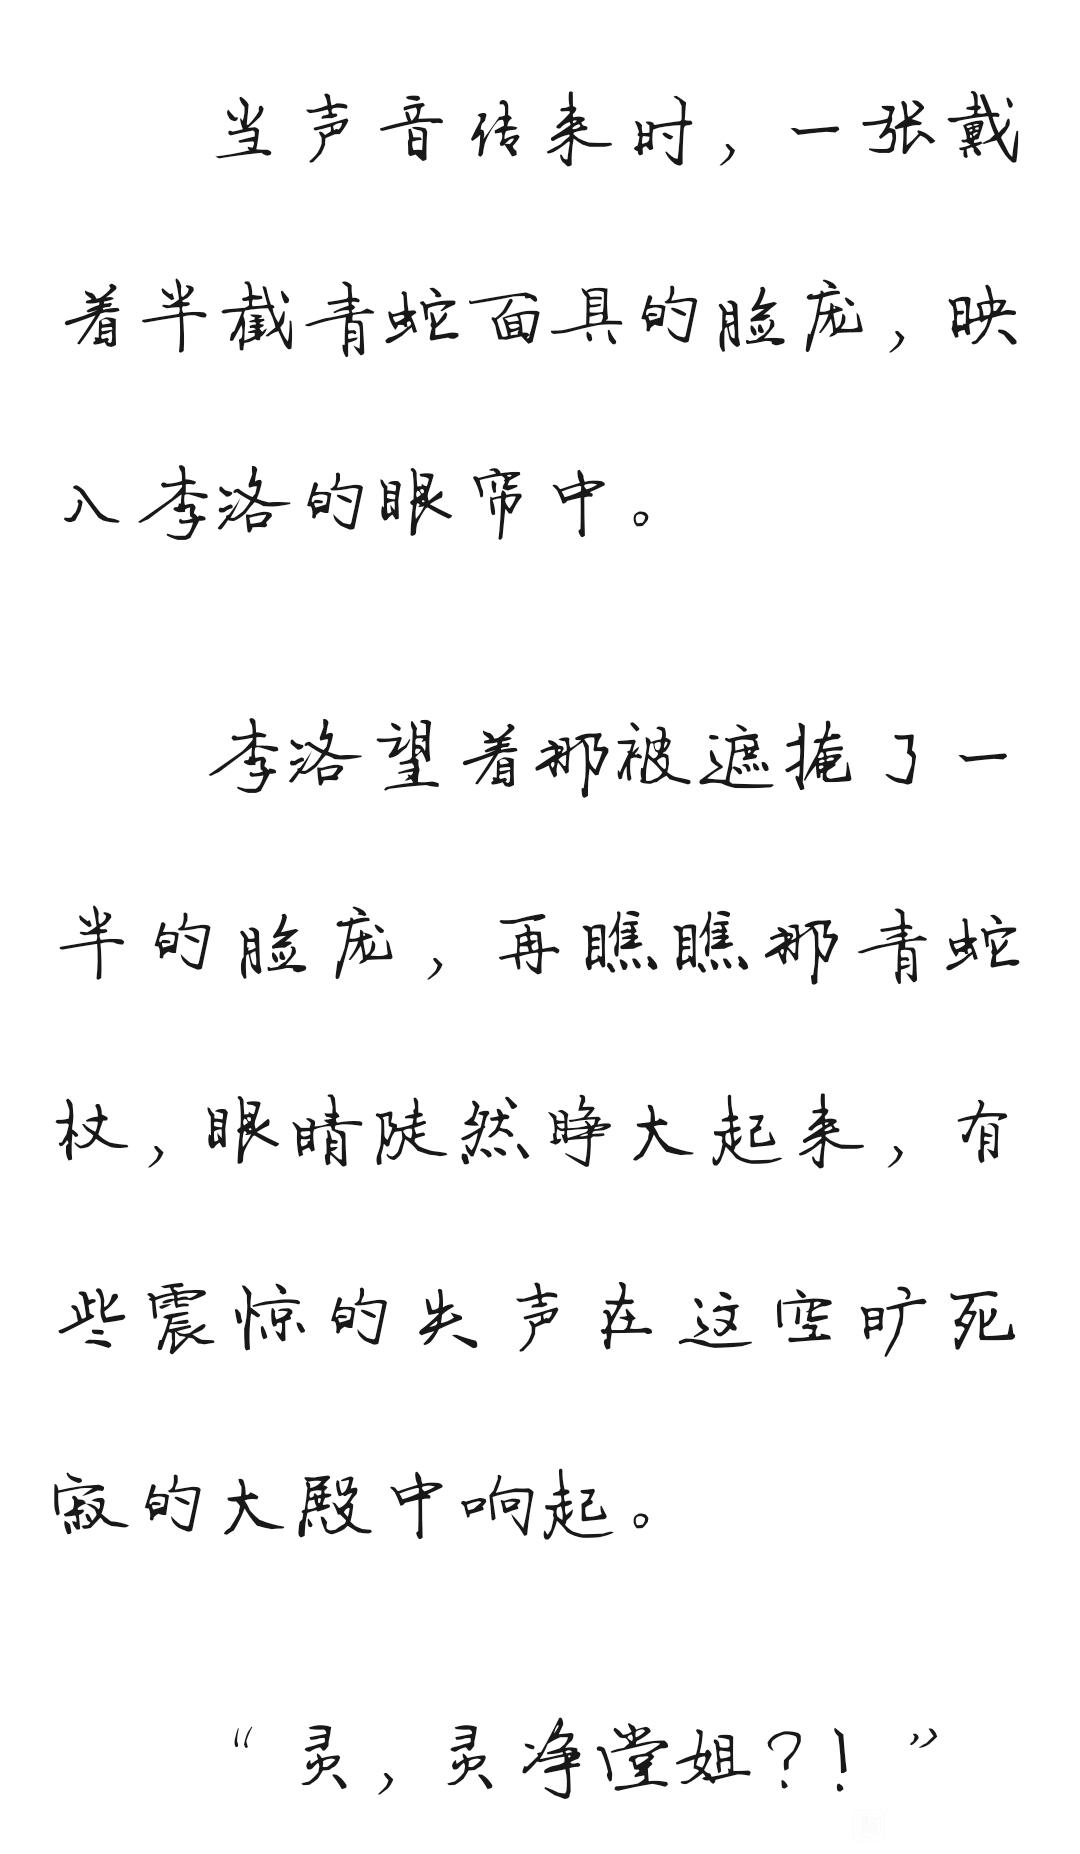 当声音传来时，一张戴
着半截青蛇面具的脸庞，映
入李洛的眼帘中。
李洛望着那被遮掩了一
半的脸庞，再瞧瞧那青蛇
杖，眼睛陡然睁大起来，有
些震惊的失声在这空旷死
寂的大殿中响起。
“灵，灵净堂姐？！”